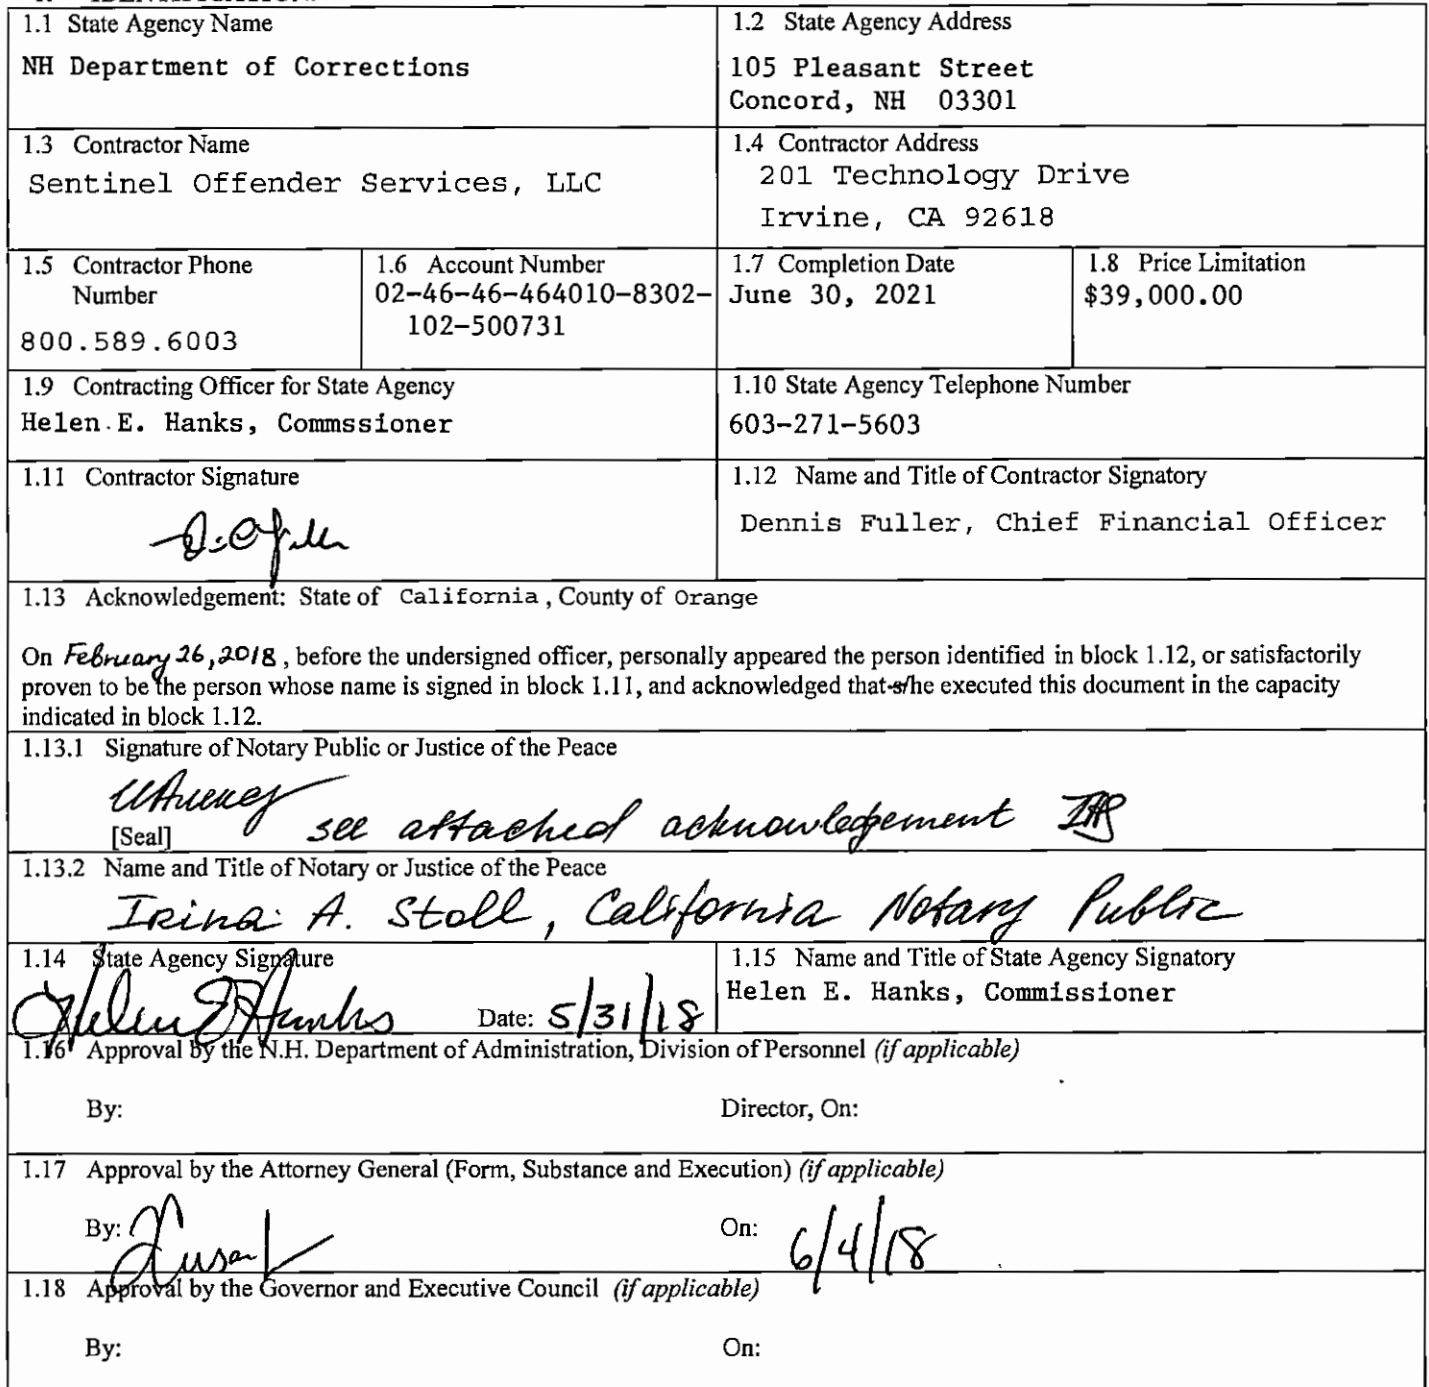 1.1 State Agency Name
NH Department of Corrections
1.2 State Agency Address
105 Pleasant Street
Concord, NH 03301
1.3 Contractor Name
Sentinel Offender Services, LLC
1.4 Contractor Address
201 Technology Drive
Irvine, CA 92618
1.5 Contractor Phone
Number
800.589.6003
1.6 Account Number
02-46-46-464010-8302-
102-500731
1.7 Completion Date
June 30, 2021
1.8 Price Limitation
$39,000.00
1.9 Contracting Officer for State Agency
Helen E. Hanks, Commssioner
1.10 State Agency Telephone Number
603-271-5603
1.11 Contractor Signature
1.12 Name and Title of Contractor Signatory
Dennis Fuller, Chief Financial Officer
1.13 Acknowledgement: State of California, County of Orange
On February 26, 2018, before the undersigned officer, personally appeared the person identified in block 1.12, or satisfactorily
proven to be the person whose name is signed in block 1.11, and acknowledged that s/he executed this document in the capacity
indicated in block 1.12.
1.13.1 Signature of Notary Public or Justice of the Peace
[Seal] see attached acknowledgement IAS
1.13.2 Name and Title of Notary or Justice of the Peace
Irina A. Stoll, California Notary Public
1.14 State Agency Signature
Helen E Hanks Date: 5/31/18
1.15 Name and Title of State Agency Signatory
Helen E. Hanks, Commissioner
1.16 Approval by the N.H. Department of Administration, Division of Personnel (if applicable)
By: Director, On:
1.17 Approval by the Attorney General (Form, Substance and Execution) (if applicable)
By: On: 6/4/18
1.18 Approval by the Governor and Executive Council (if applicable)
By: On: